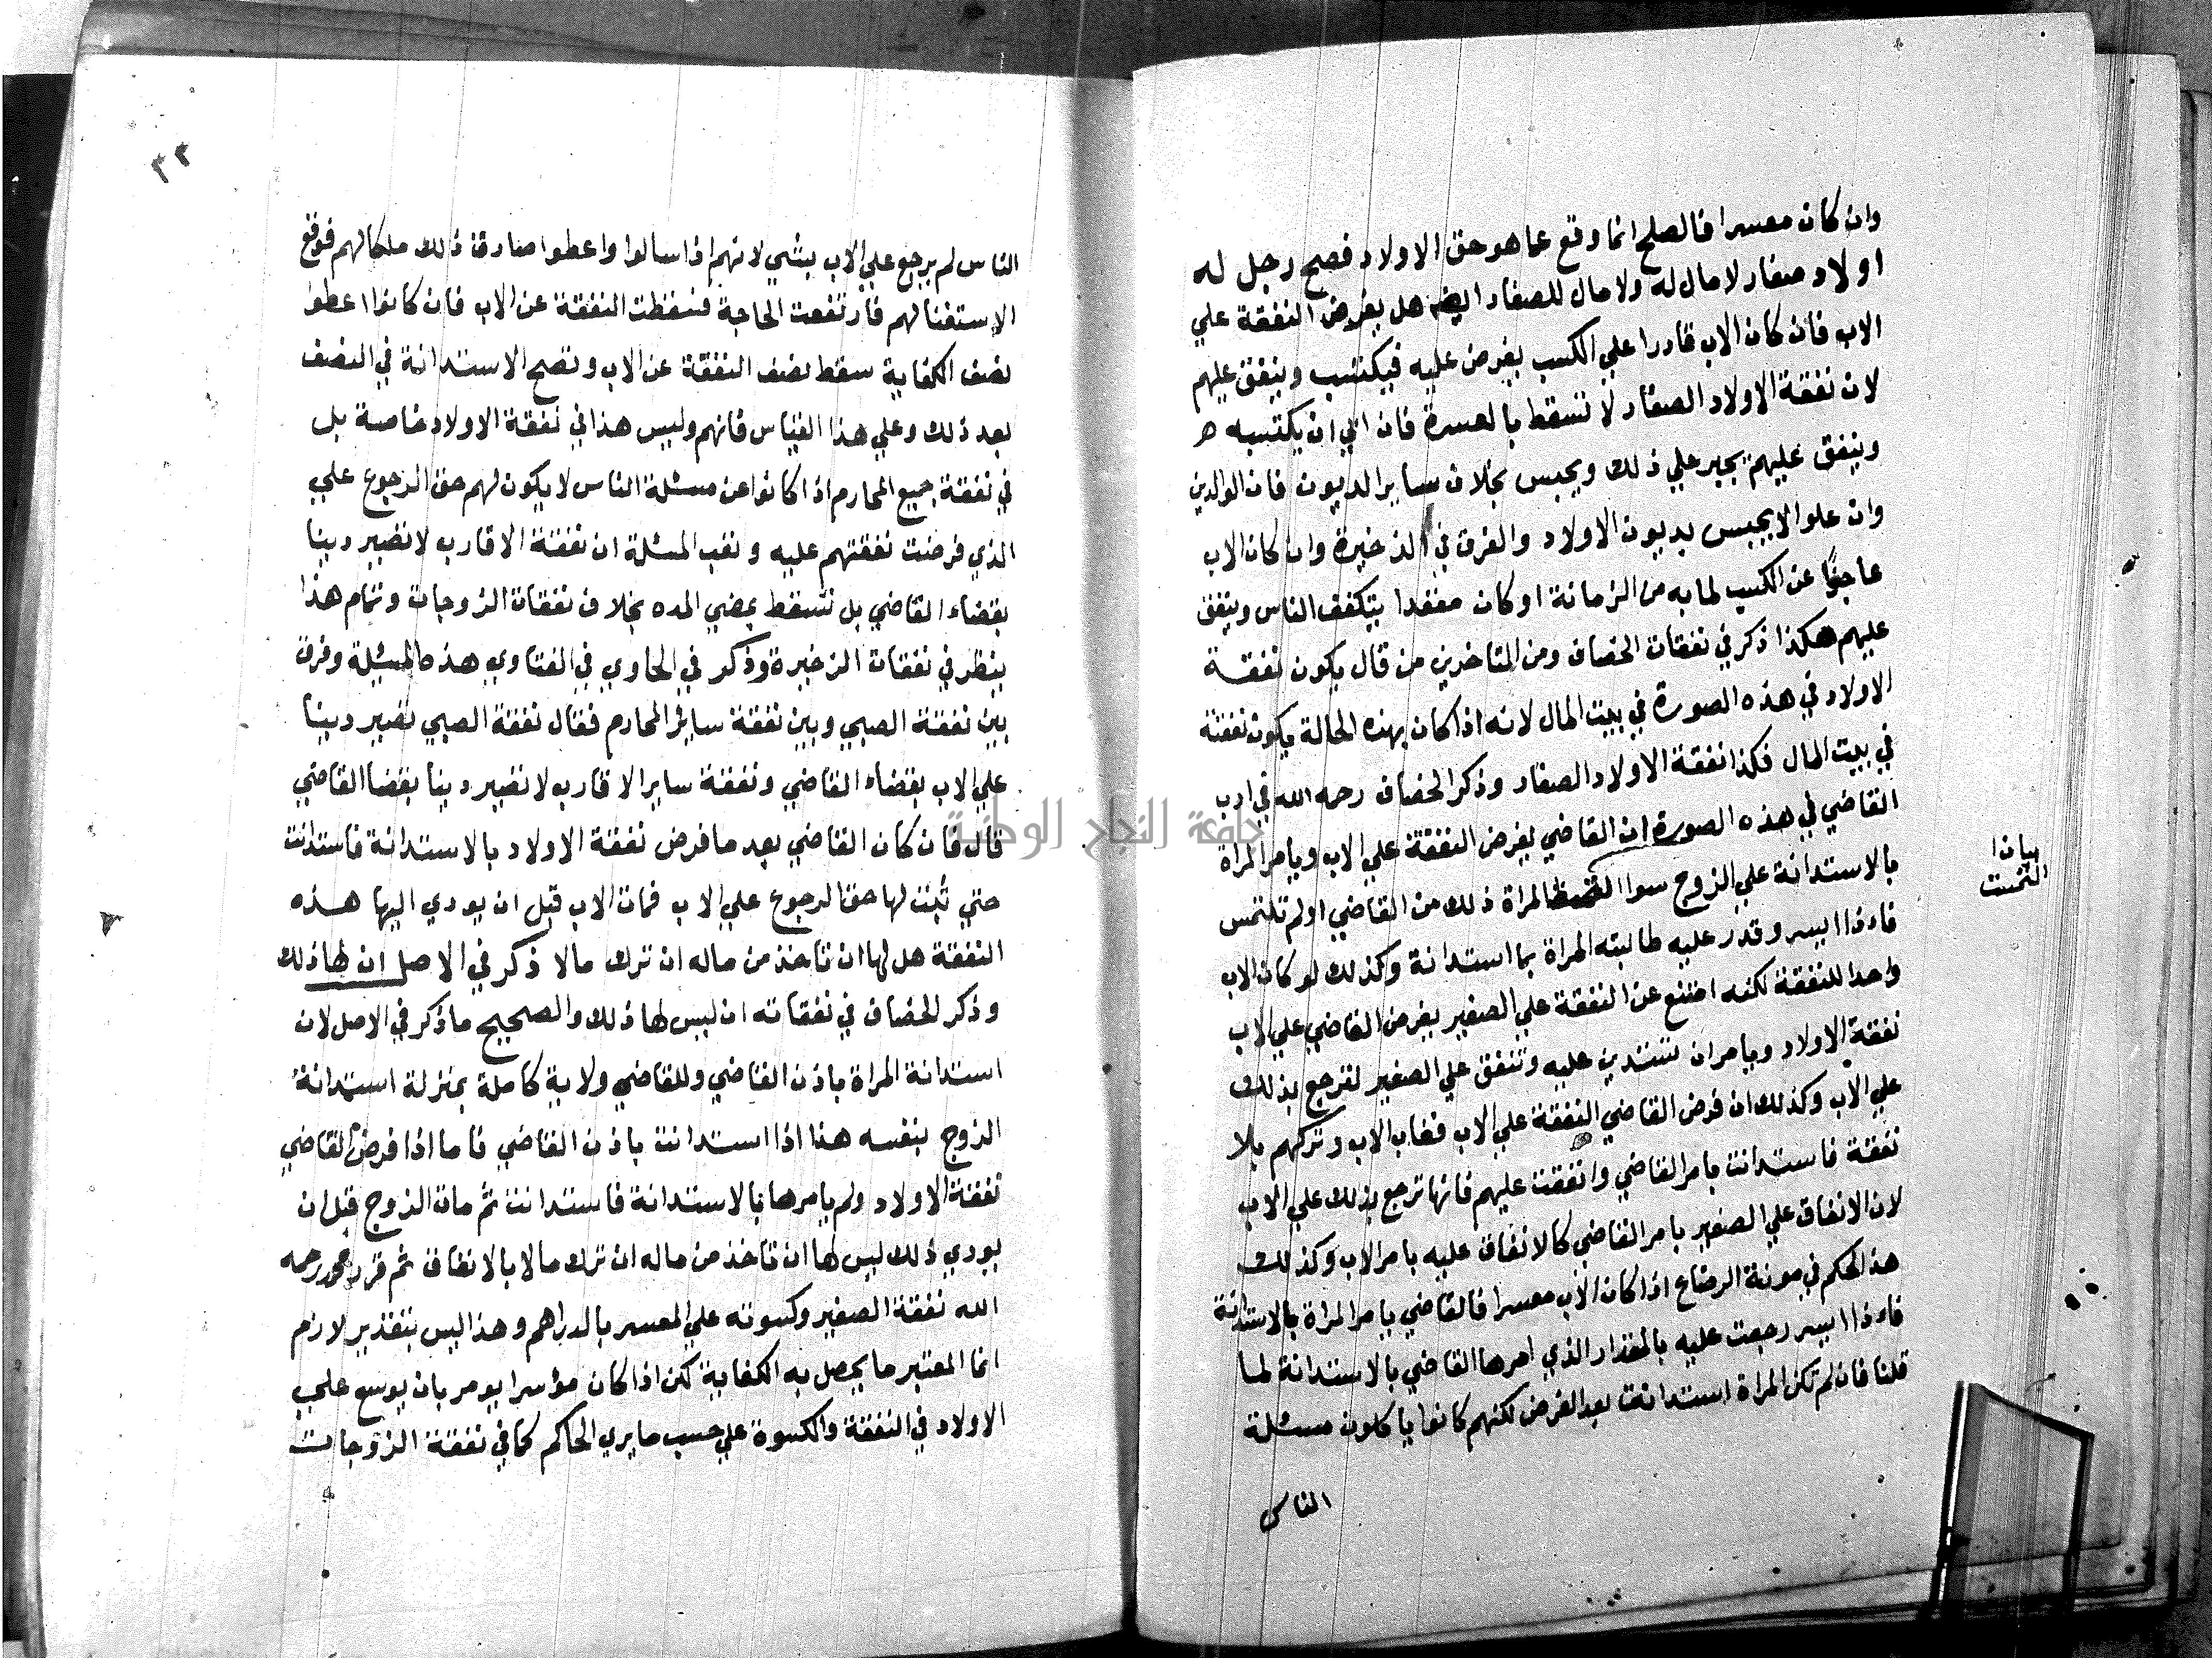 وان كان معسرا فالصلح انما وقع عما هو حق الاولاد فصح رجل له
اولاد صغار لا مال له ولا مال للصغار ايضه هل يفرض النفقة علي
الاب فان كان الاب قادرا علي الكسب يفرض عليه فيكتسب وينفق عليهم
لان نفقة الاولاد الصغار لا تسقط بالعسرة فان ابي ان يكتسبه
وينفق عليهم يجبر علي ذلك ويحبس بخلاف ساير الديون فان الوالدين
وان علوا لا يحبس بديون الاولاد والفرق في الذخيرة وان كان الاب
عاجزا عن الكسب لما به من الزمانة او كان مقعدا يتكفف الناس وينفق
عليهم هكذا ذكر في نفقات الخصاف ومن المتاخرين من قال يكون نفقة
الاولاد في هذه الصورة في بيت المال لانه اذا كان بهذه الحالة يكون نفقته
في بيت المال فكذا نفقة الاولاد الصغار وذكر الخصاف رحمه الله في ادب
القاضي في هذه الصورة ان القاضي يفرض النفقة علي الاب ويامر المراة
بالاستدانة علي الزوج سوا المراة ذلك من القاضي او لم تلتمس
بيان
التمست
فاءذا ايسر وقدر عليه طالبته المراة بما استدانة وكذلك لو كان الاب
واحدا للنفقة لكنه امتنع عن النفقة علي الصغير يفرض القاضي علي الاب
نفقة الاولاد ويامر ان تستدين عليه وتنفق علي الصغير لترجع بذلك
علي الاب وكذلك ان فرض القاضي النفقة علي الاب فغاب الاب وتركهم بلا
نفقة فاستدانت بامر القاضي وانفقت عليهم فانها ترجع بذلك علي الاب
لان الانفاق علي الصغير بامر القاضي كالانفاق عليه بامر الاب وكذلك
هذ الحكم في مونة الرضاع اذا كان الاب معسرا فالقاضي يامر المراة بالاستدانة
فاءذا ايسر رجعت عليه بالمقدار الذي امرها القاضي بالاستدانة لما
قلنا فان لم تكن المراة استدانت بعد الفرض لكنهم كانوا ياكلون مسئلة
الناس
٣٢
الناس لم يرجع علي الاب بشي لانهم اذا سالوا واعطوا صار ذلك ملكا لهم فوقع
الاستغنا لهم فارتفعت الحاجة فسقطت النفقة عن الاب فان كانوا اعطوا
نصف الكفاية سقط نصف النفقة عن الاب وتصح الاستدانة في النصف
بعد ذلك وعلي هذا القياس فانهم وليس هذا في نفقة الاولاد خاصة بل
في نفقة جميع المحارم اذا كانوا عن مسئلة الناس لا يكون لهم حق الرجوع علي
الذي فرضت نفقتهم عليه و المسئلة ان نفقة الاقارب لا تصير دينا
بقضاء القاضي بل تسقط بمضي المده بخلاف نفقات الزوجات وتمام هذا
ينظر في نفقات الذخيرة وذكر في الحاوي في الفتاوي هذه المسئلة وفرق
بين نفقة الصبي وبين نفقة ساير المحارم فقال نفقة الصبي تصير دينا
علي الاب بقضاء القاضي ونفقة ساير الاقارب لا تصير دينا بقضا القاضي
قال فان كان القاضي بعد ما فرض نفقة الاولاد بالاستدانة فاستدانت
حتي ثبت لها حق الرجوع علي الاب فمات الاب قبل ان يودي اليها هذه
النفقة هل لها ان تاخذ من ماله ان ترك مالا ذكر في الاصل ان لها ذلك
وذكر الخصاف في نفقاته ان ليس لها ذلك والصحيح ما ذكر في الاصل لان
استدانة المراة باذن القاضي وللقاضي ولاية كاملة بمنزلة استدانة
الزوج بنفسه هذا اذا استدانت باذن القاضي فاما اذا فرض القاضي
نفقة الاولاد ولم يامرها بالاستدانة فاستدانت ثم مات الزوج قبل ان
يودي ذلك ليس لها ان تاخذ من ماله ان ترك مالا بالانفاق ثم قرر محمد رحمه
الله نفقة الصغير وكسوته علي المعسر بالدراهم وهذا ليس بتقدير لازم
انما المعتبر ما يحصل به الكفاية لكن اذا كان مؤسرا يومر بان يوسع علي
الاولاد في النفقة والكسوة علي حسب ما يري الحاكم كما في نفقة الزوجات
جامعة النجاح الوطنية